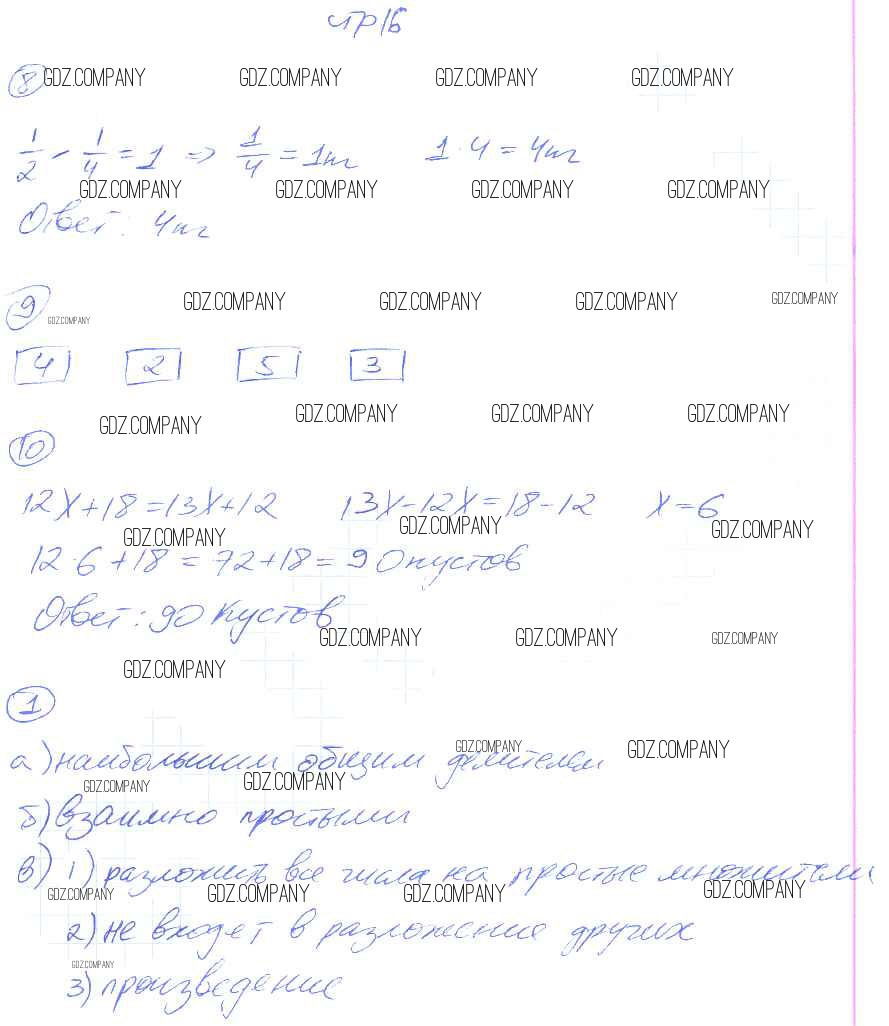 стр 16
8 GDZ.COMPANY GDZ.COMPANY GDZ.COMPANY GDZ.COMPANY
1/2 - 1/4 = 1 => 1/4 = 1кг 1·4 = 4кг
GDZ.COMPANY GDZ.COMPANY GDZ.COMPANY GDZ.COMPANY
Ответ: 4кг
9 GDZ.COMPANY GDZ.COMPANY GDZ.COMPANY GDZ.COMPANY
GDZ.COMPANY
4 2 5 3
GDZ.COMPANY GDZ.COMPANY GDZ.COMPANY GDZ.COMPANY
10
12x+18=13x+12 13x-12x=18-12 x=6
GDZ.COMPANY GDZ.COMPANY GDZ.COMPANY
12·6+18=72+18=90 кустов
Ответ: 90 кустов
GDZ.COMPANY GDZ.COMPANY GDZ.COMPANY
GDZ.COMPANY
1
GDZ.COMPANY GDZ.COMPANY
а) наибольшим общим делителем
GDZ.COMPANY GDZ.COMPANY
б) взаимно простыми
в) 1) разложить все числа на простые множители
GDZ.COMPANY GDZ.COMPANY GDZ.COMPANY GDZ.COMPANY
2) не входят в разложение других
GDZ.COMPANY
3) произведение